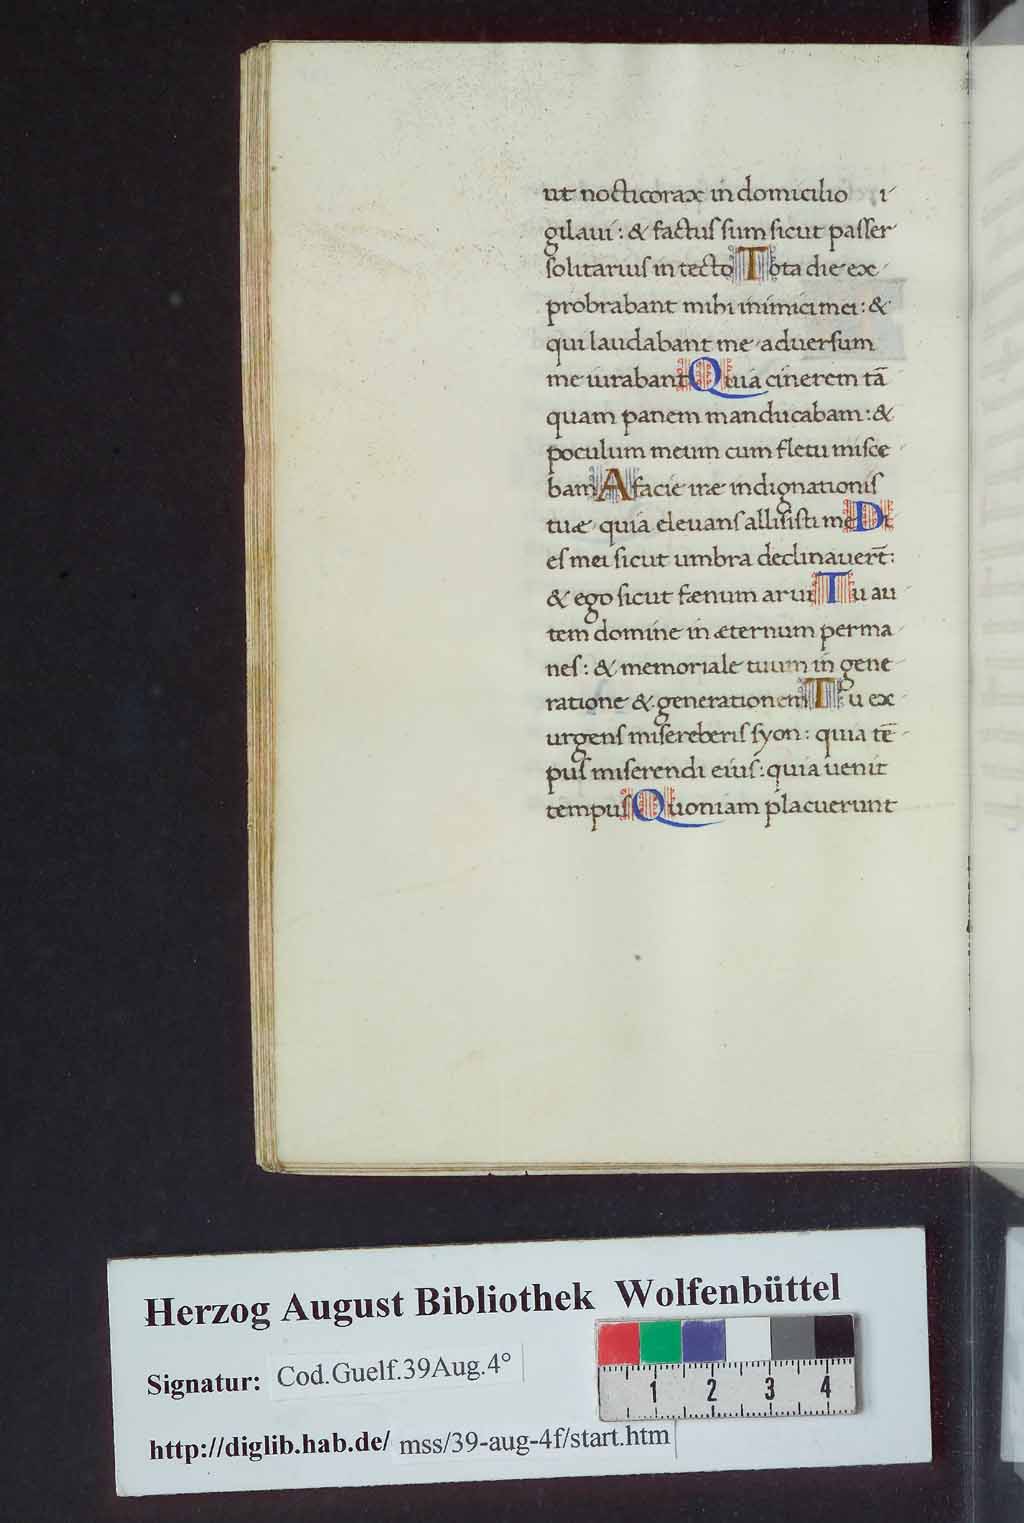 ut nocticorax in domicilio i
gilaui: & factus sum sicut passer
solitarius in tecto Tota die ex
probrabant mihi inimici mei: &
qui laudabant me aduersum
me iurabant Quia cinerem tā
quam panem manducabam: &
poculum meum cum fletu misce
bam A facie iræ indignationis
tuæ quia eleuans allisisti me Di
es mei sicut umbra declinauert̄:
& ego sicut fænum arui Tu au
tem domine in æternum perma
nes: & memoriale tuum in gene
ratione & generationem Tu ex
urgens misereberis syon: quia tē
pus miserendi eius: quia uenit
tempus Quoniam placuerunt
Herzog August Bibliothek Wolfenbüttel
Signatur: Cod.Guelf.39Aug.4°
1 2 3 4
http://diglib.hab.de/ mss/39-aug-4f/start.htm